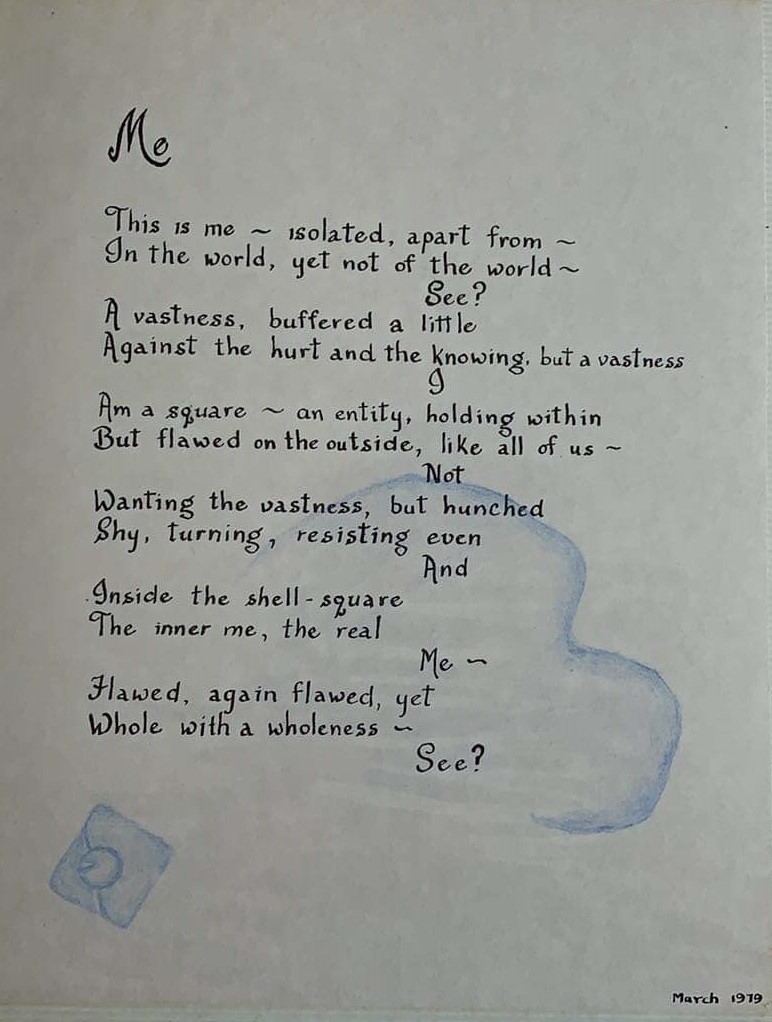 Me
This is me ~ isolated, apart from ~
In the world, yet not of the world ~
See?
A vastness, buffered a little
Against the hurt and the knowing, but a vastness
I
Am a square ~ an entity, holding within
But flawed on the outside, like all of us ~
Not
Wanting the vastness, but hunched
Shy, turning, resisting even
And
Inside the shell-square
The inner me, the real
Me ~
Flawed, again flawed, yet
Whole with a wholeness ~
See?
March 1979